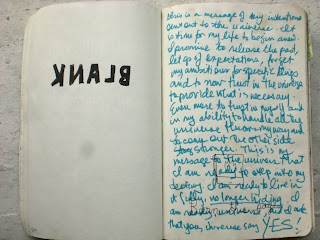 BLANK
this is a message of my intentions
sent out to the universe. It
is time for my life to begin anew.
I promise to release the past,
let go of expectations, forget
my ambitions for specific things
and to now trust in the universe
to provide what is necessary.
Even more to trust in myself and
in my ability to handle all the
universe throws my way and
to come out the other side
stronger. This is my
message to the universe that
I am ready to step into my
destiny. I am ready to live in
it fully, no longer hiding. I
am ready, universe, and I ask
that you, universe say YES!